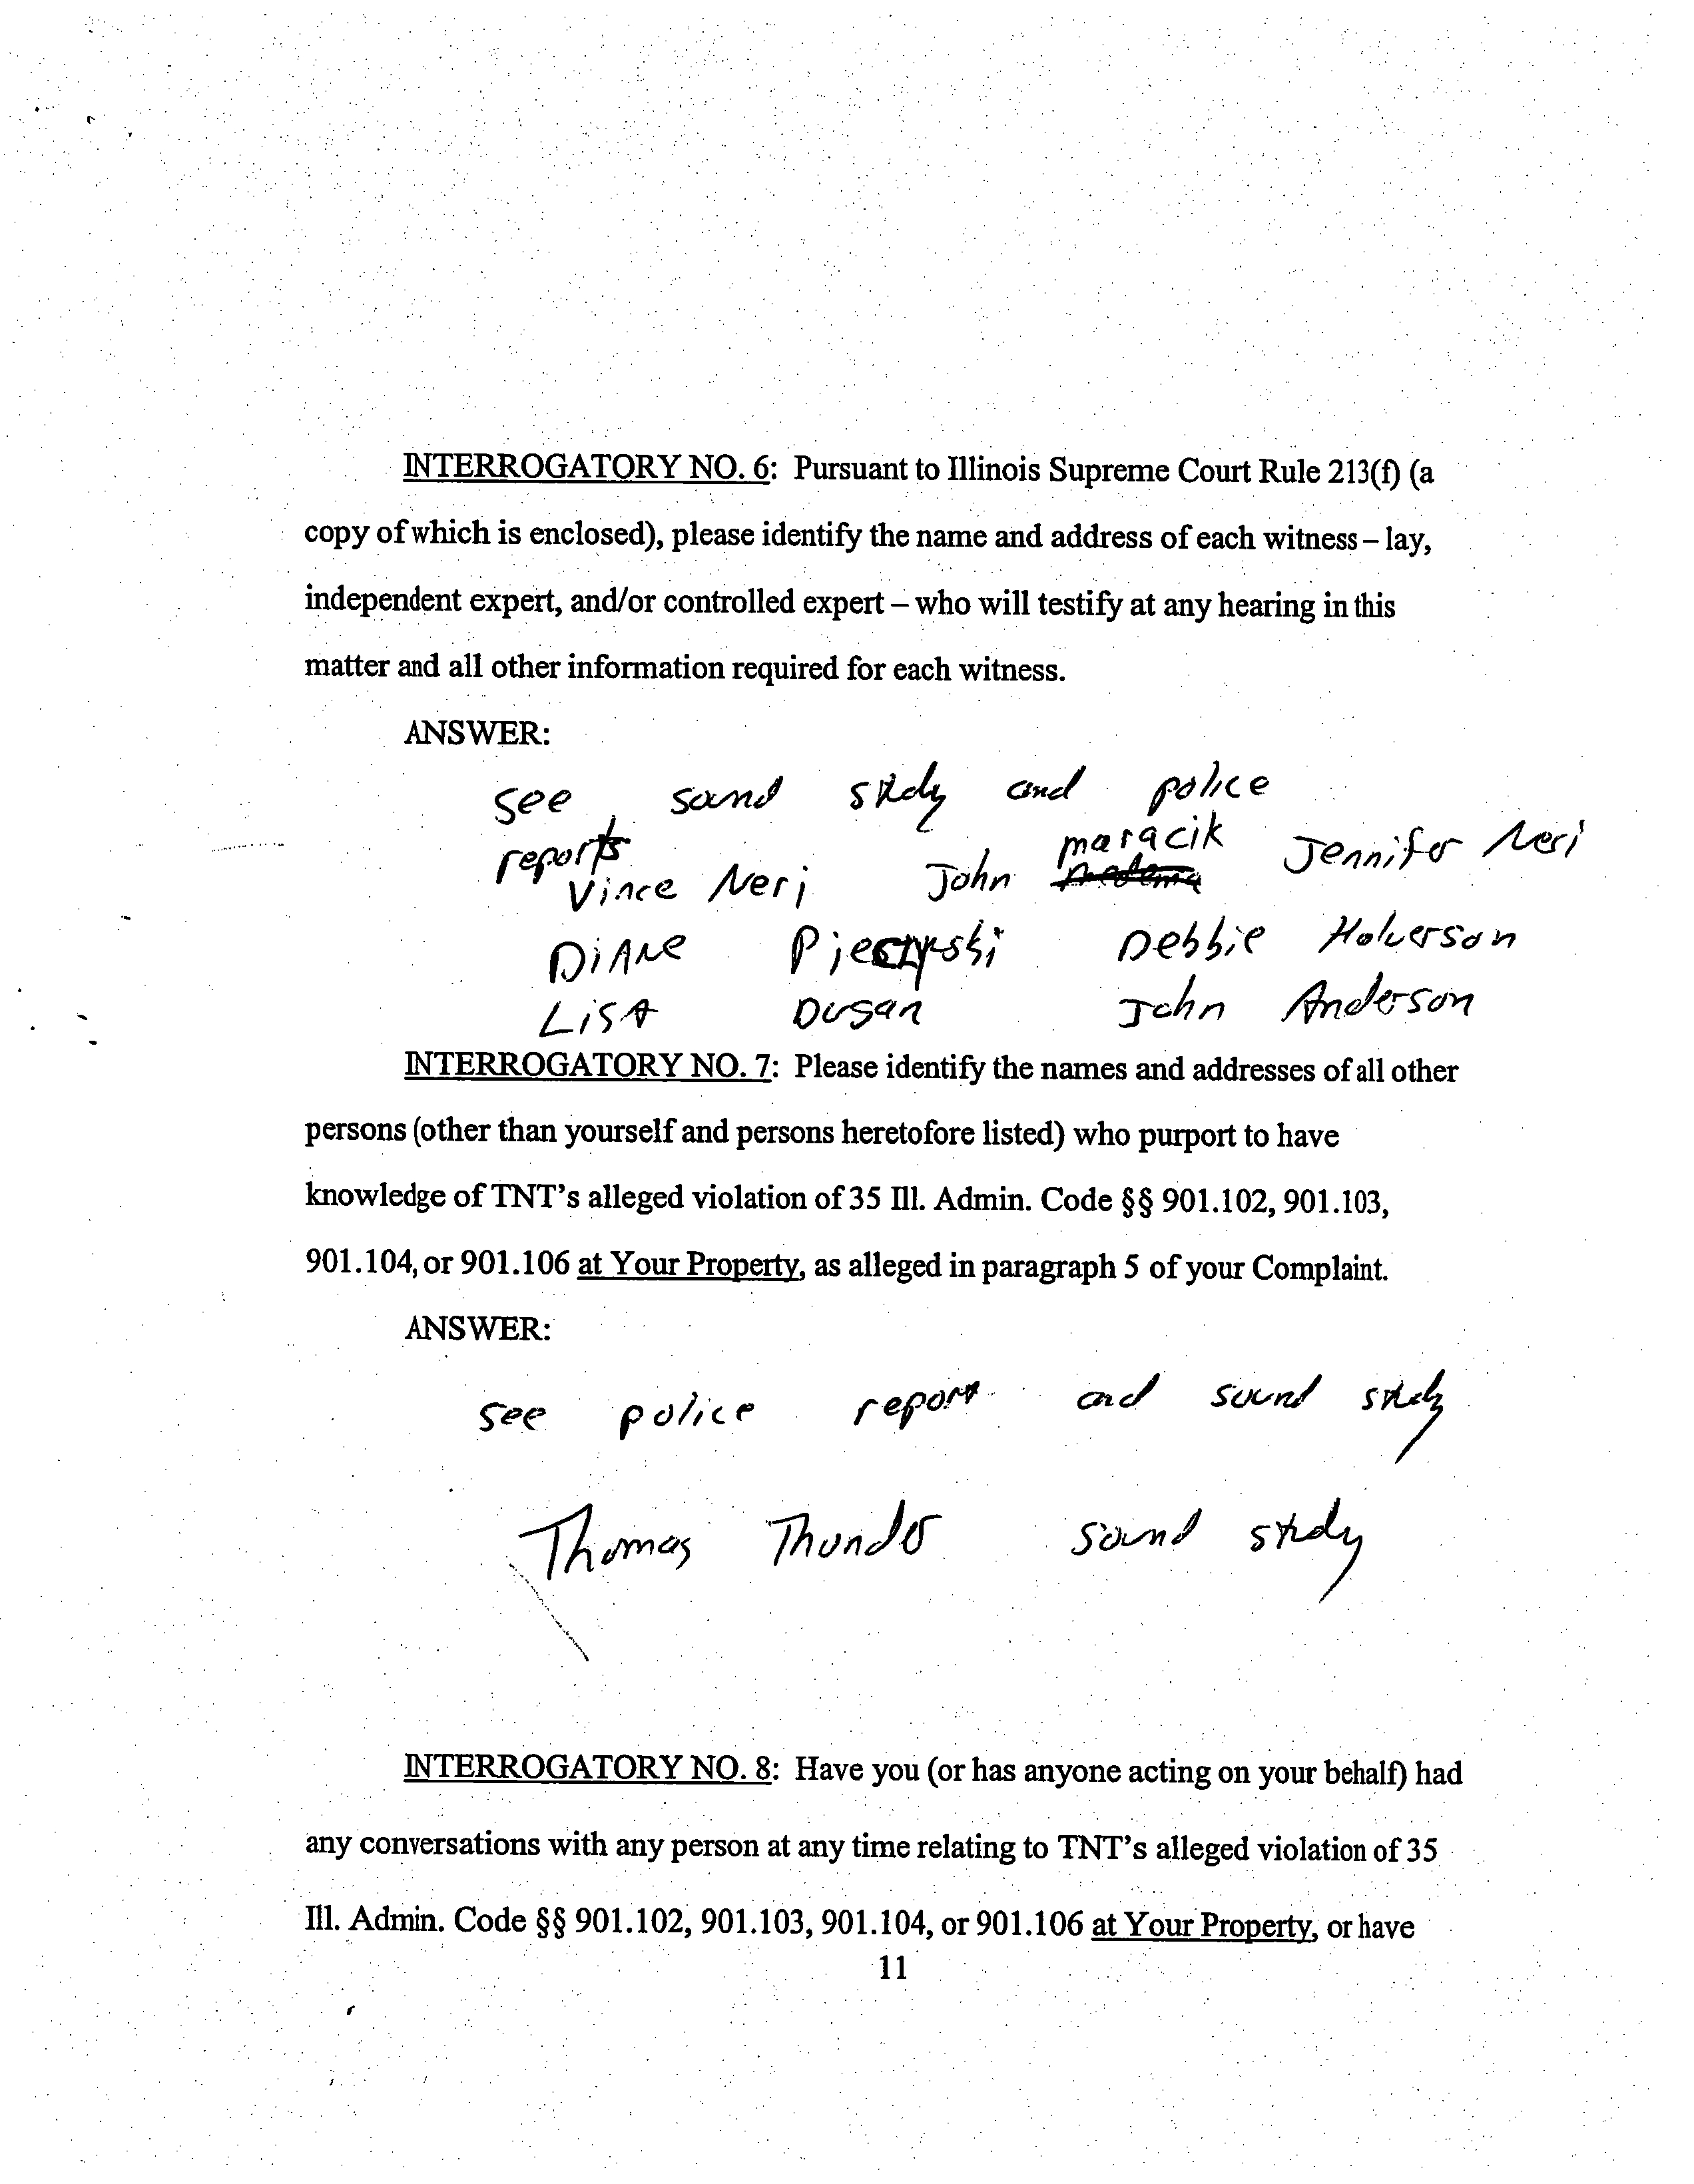 INTERROGATORY NO. 6: Pursuant to Illinois Supreme Court Rule 213(f) (a
copy of which is enclosed), please identify the name and address of each witness – lay,
independent expert, and/or controlled expert – who will testify at any hearing in this
matter and all other information required for each witness.
ANSWER:
see sound study and police
reports
Vince Neri John maracik Jennifer Neri
DiANe Debbie Holverson
LiSA Dugan John Anderson
INTERROGATORY NO. 7: Please identify the names and addresses of all other
persons (other than yourself and persons heretofore listed) who purport to have
knowledge of TNT's alleged violation of 35 Ill. Admin. Code §§ 901.102, 901.103,
901.104, or 901.106 at Your Property, as alleged in paragraph 5 of your Complaint.
ANSWER:
see police report and sound study
Thomas Thunder sound study
INTERROGATORY NO. 8: Have you (or has anyone acting on your behalf) had
any conversations with any person at any time relating to TNT's alleged violation of 35
Ill. Admin. Code §§ 901.102, 901.103, 901.104, or 901.106 at Your Property, or have
11